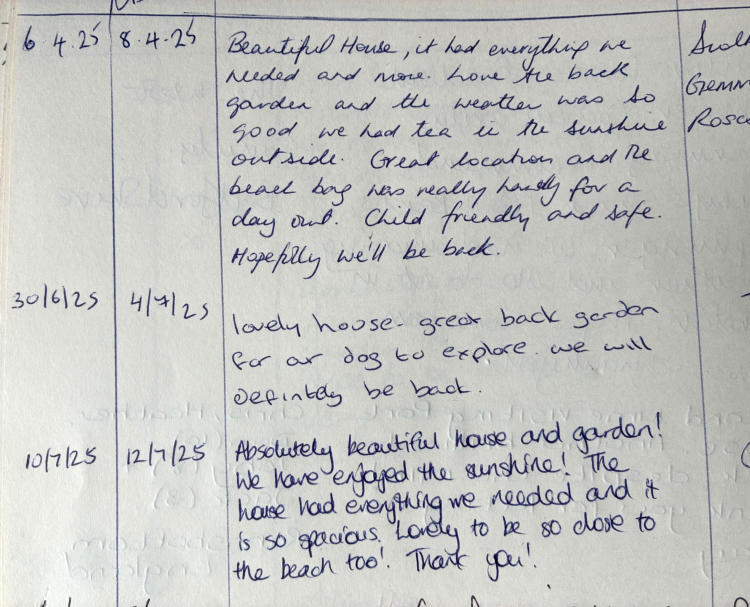 6.4.25 8.4.25 Beautiful House, it had everything we
needed and more. Love the back
garden and the weather was so
good we had tea in the sunshine
outside. Great location and the
beach bag was really handy for a
day out. Child friendly and safe.
Hopeflly we'll be back.
30/6/25 4/7/25 lovely house - great back garden
for our dog to explore. we will
defintely be back.
10/7/25 12/7/25 Absolutely beautiful house and garden!
We have enjoyed the sunshine! The
house had everything we needed and it
is so spacious. Lovely to be so close to
the beach too! Thank you!